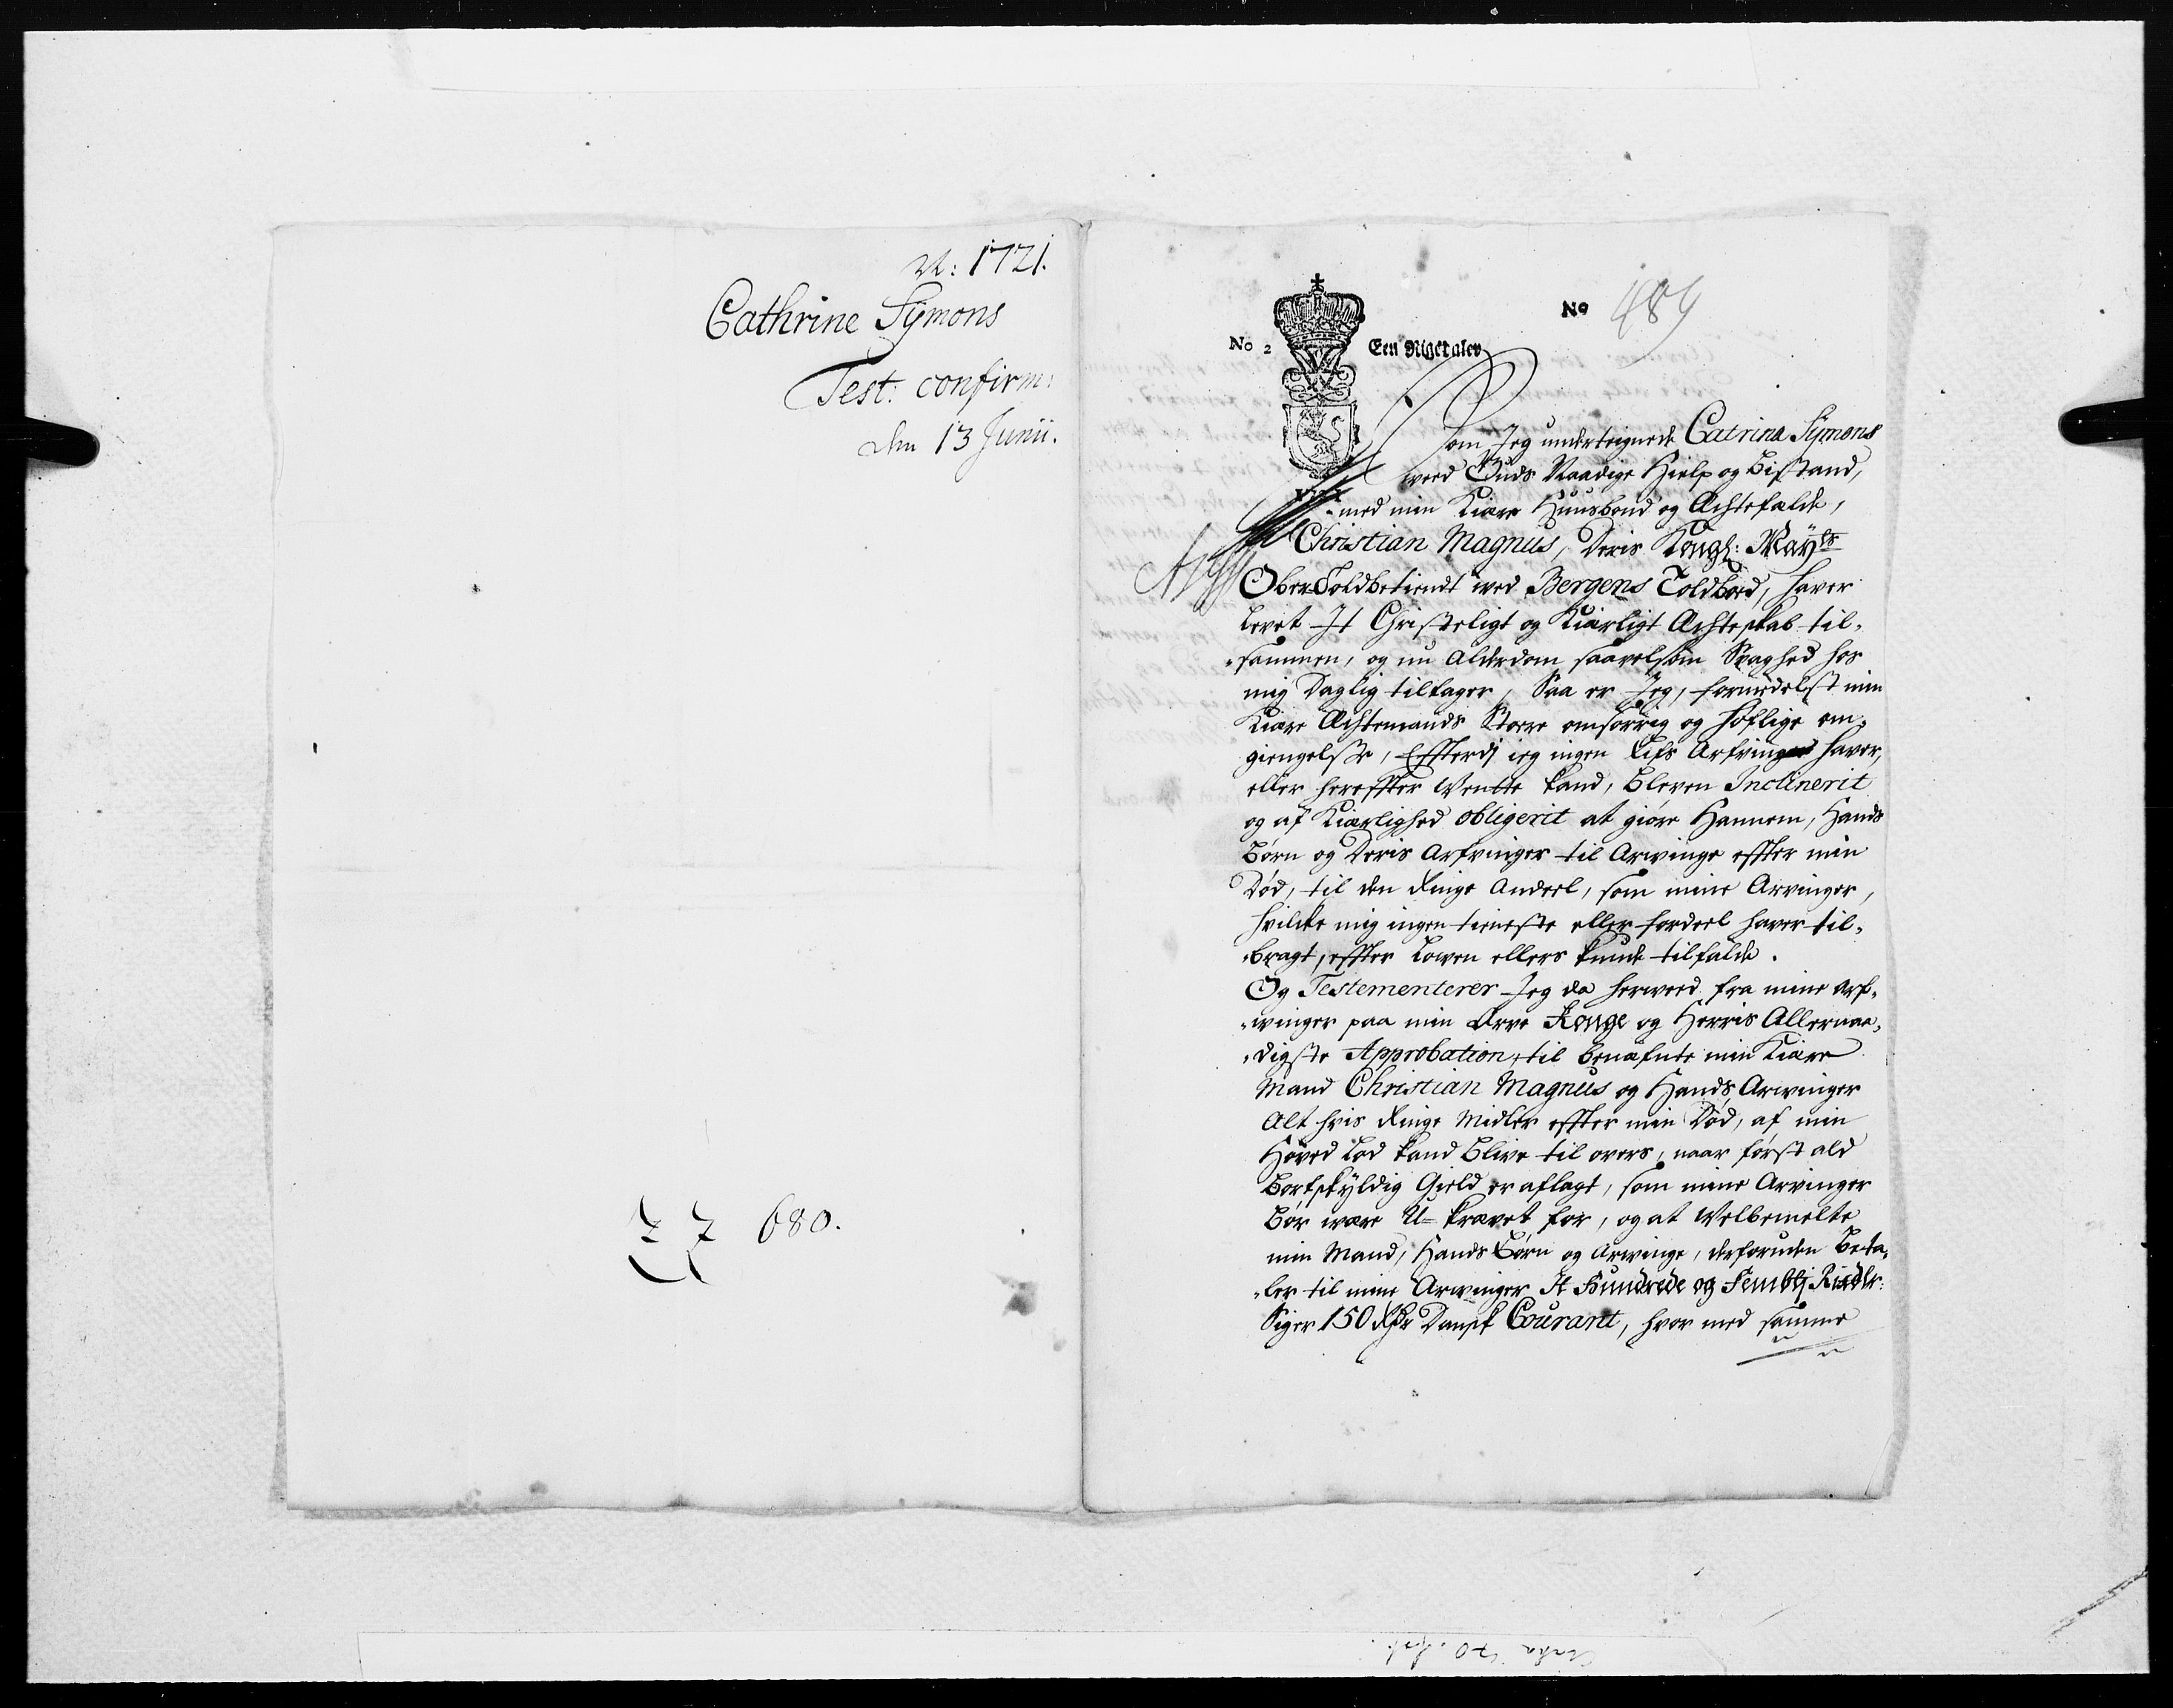 N: 1721.
Cathrine Sÿmons
Test: confirm:
den 13 Junii.
680.
No 489
No 2 Een Rigsdaler
Som Jeg underteignede Catrina Sÿmons
weed Guds Naadige Hielp og bistand,
med min Kiære Huusbond og Ächtefælde,
Christian Magnus, Deris Kongl: Mayts
Ober Toldbetient ved Bergens Toldboed, haver
levet It Christeligt og Kiærligt Ächteskab til-
-sammen, og nu Alderdom saavelsom Svaghed hos
mig Daglig tiltager, Saa er Jeg, formedelst min
Kiære Ächtemands Store omsorrig og høflige om-
giengelsse, Effterdj ieg ingen Lifs Arfvinger haver,
eller hereffter Wente kand, bleven Inclinerit
og af Kiærlighed obligerit at giøre Hannem, Hands
børn og Deris Arfvinger til Arvinge effter min
Død, til den Ringe Andeel, som mine Arvinger,
hvilcke mig ingen tieneste eller fordeel haver til-
-bragt, effter Lowen ellers kunde tilfalde.
Og Testementerer Jeg da herweed fra mine Arf-
-winger paa min Arve Konge og Herris Allernaa-
-digste Approbation, til benæfnte min Kiære
Mand Christian Magnus og Hands Arwinger
Alt hvis Ringe Midler effter min Død, af min
Hoved Lod kand blive til overs, naar først ald
bortskyldig Gield er aflagt, som mine Arvinger
bør være U-kravet for, og at Welbemelte
min Mand, Hands børn og Arwinge, derforuden beta-
-ler til mine Arwinger It Hundrede og Fembtj Rixdlr:
Siger 150 Rdr Dansk Courant, hvor med samme